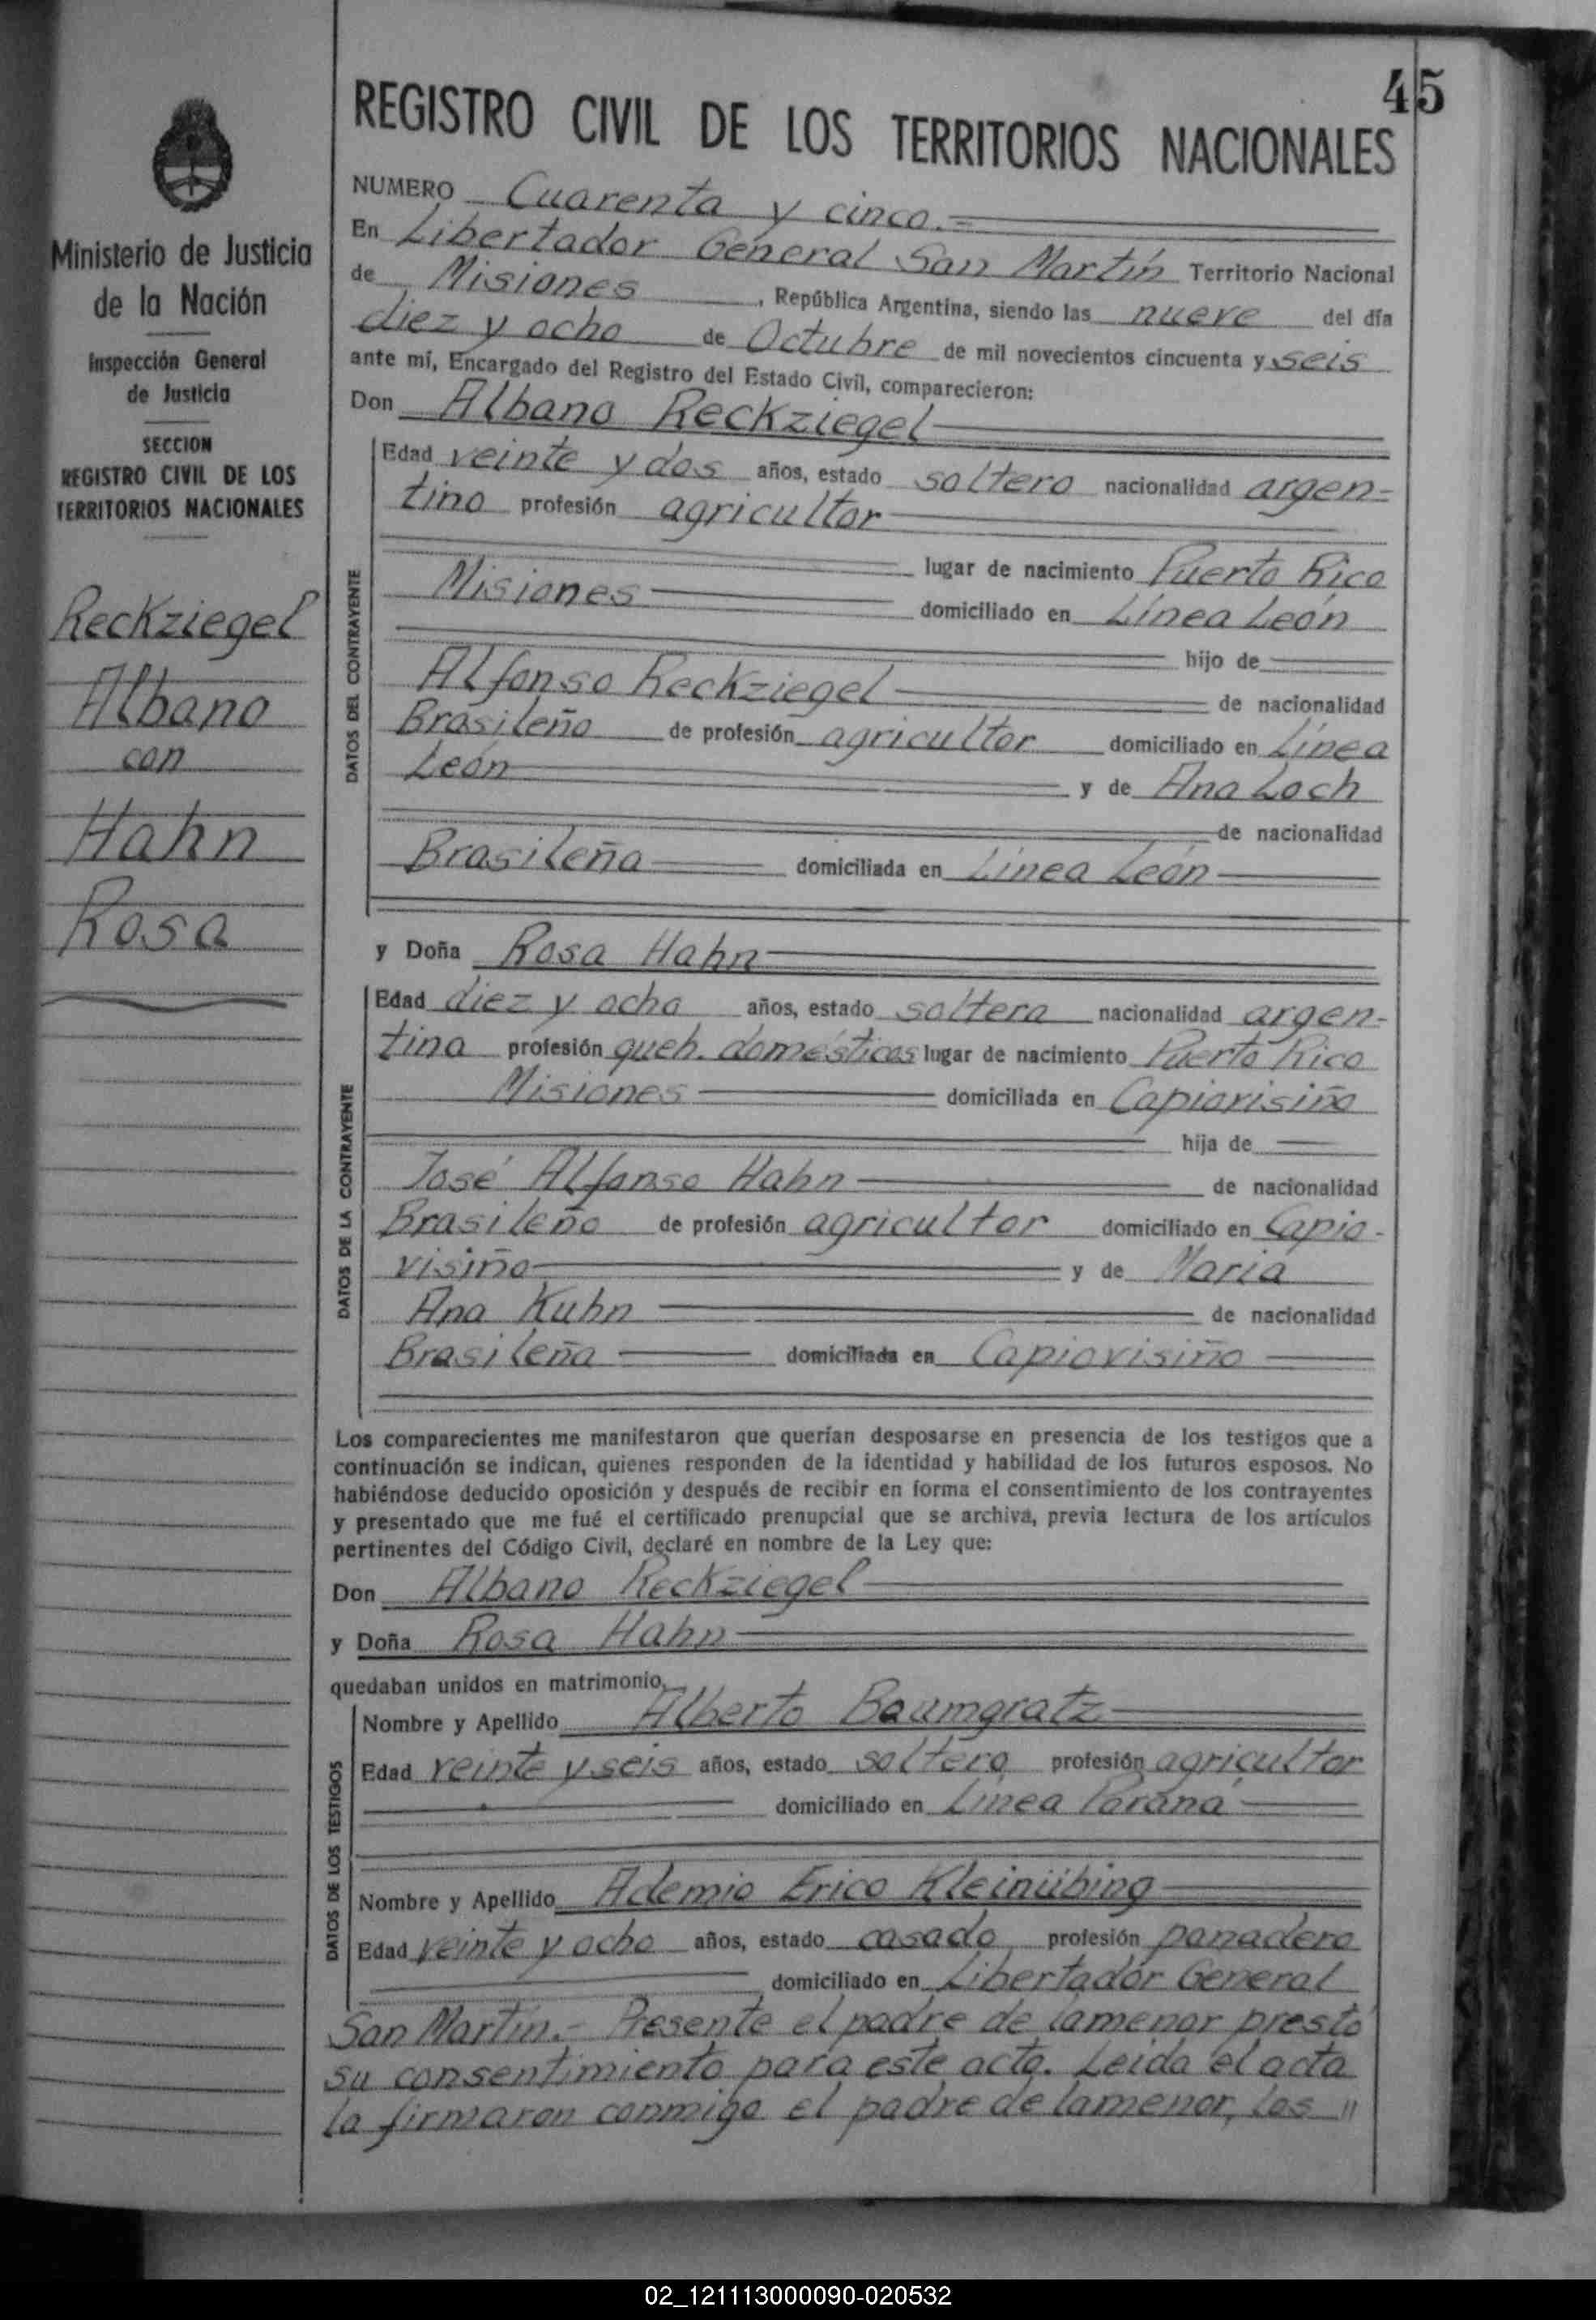 45
REGISTRO CIVIL DE LOS TERRITORIOS NACIONALES
Ministerio de Justicia
de la Nación
Inspección General
de Justicia
SECCION
REGISTRO CIVIL DE LOS
TERRITORIOS NACIONALES
Reckziegel
Albano
con
Hahn
Rosa
NUMERO Cuarenta y cinco.=
En Libertador General San Martín Territorio Nacional
de Misiones, República Argentina, siendo las nueve del día
diez y ocho de Octubre de mil novecientos cincuenta y seis
ante mí, Encargado del Registro del Estado Civil, comparecieron:
Don Albano Reckziegel
DATOS DEL CONTRAYENTE
Edad veinte y dos años, estado soltero nacionalidad argen=
tino profesión agricultor
lugar de nacimiento Puerto Rico
Misiones domiciliado en Línea León
hijo de
Alfonso Reckziegel de nacionalidad
Brasileño de profesión agricultor domiciliado en Línea
León y de Ana Loch
de nacionalidad
Brasileña domiciliada en Línea León
y Doña Rosa Hahn
DATOS DE LA CONTRAYENTE
Edad diez y ocho años, estado soltera nacionalidad argen-
tina profesión queh. domésticos lugar de nacimiento Puerto Rico
Misiones domiciliada en Capiovisiño
hija de
José Alfonso Hahn de nacionalidad
Brasileño de profesión agricultor domiciliado en Capio-
visiño y de Maria
Ana Kuhn de nacionalidad
Brasileña domiciliada en Capiovisiño
Los comparecientes me manifestaron que querían desposarse en presencia de los testigos que a
continuación se indican, quienes responden de la identidad y habilidad de los futuros esposos. No
habiéndose deducido oposición y después de recibir en forma el consentimiento de los contrayentes
y presentado que me fué el certificado prenupcial que se archiva, previa lectura de los artículos
pertinentes del Código Civil, declaré en nombre de la Ley que:
Don Albano Reckziegel
y Doña Rosa Hahn
quedaban unidos en matrimonio,
DATOS DE LOS TESTIGOS
Nombre y Apellido Alberto Baumgratz
Edad veinte y seis años, estado soltero profesión agricultor
domiciliado en Línea Paraná
Nombre y Apellido Ademio Erico Kleinübing
Edad veinte y ocho años, estado casado profesión panadero
domiciliado en Libertador General
San Martín.- Presente el padre de lamenor prestó
su consentimiento para este acto. Leida el acta
la firmaron conmigo el padre de lamenor, los "
02_121113000090-020532